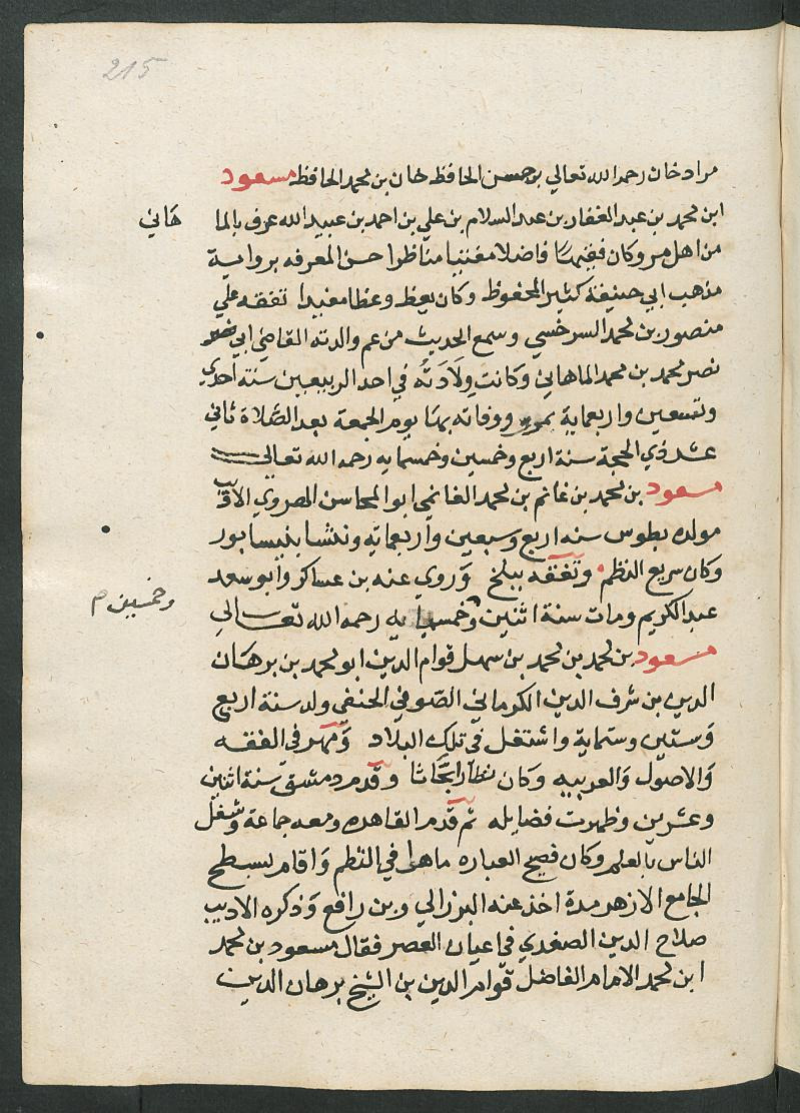 215
مراد خان رحمه الله تعالي بن حسن الحافظ خان بن محمد الحافظ مسعود
ابن محمد بن عبد الغفار بن عبد السلام بن علي بن احمد بن عبيد الله عرف بالما
هاني
من اهل مرو وكان فقيها فاضلا مفتيا مناظرا حسن المعرفه بروامية
مذهب ابي حنيفة كثير المحفوظ وكان يعظ وعظا مفيدا تفقه علي
منصور بن محمد السرخسي وسمع الحديث من عم والدته القاضي ابي نصر
نصر محمد بن محمد الماهاني وكانت ولادته في احد الربيعين سنة احدي
وتسعين واربعماية بمرو ووفاته بها يوم الجمعة بعد الصلاة ثاني
عشر ذي الحجة سنة اربع وخمسين وخمسمايه رحمه الله تعالي
مسعود بن محمد بن غانم بن محمد الغانمي ابوا المحاسن الهروي الاديب
مولده بطوس سنه اربع وسبعين واربعمايه ونشا بنيسابور
وكان سريع النظم وتفقه ببلخ وروي عنه بن عساكر وابو سعد
عبد الكريم ومات سنة اثنين وخمسمايه رحمه الله تعالي
وخمسين م
مسعود بن محمد بن محمد بن سهل قوام الدين ابو محمد بن برهان
الدين بن شرف الدين الكرماني الصوفي الحنفي ولد سنة اربع
وستين وستماية واشتغل في تلك البلاد ومهر في الفقه
والاصول والعربيه وكان نظارا بحاثا وقدم دمشق سنة اثنين
وعشرين وظهرت فضايله ثم قدم القاهره ومعه جماعة وشغل
الناس بالعلم وكان فصيح العباره ماهرا في النظم واقام بسطح
الجامع الازهر مدة اخذ عنه البرزالي وبن رافع وذكره الاديب
صلاح الدين الصفدي في اعيان العصر فقال مسعود بن محمد
ابن محمد الامام الفاضل قوام الدين بن الشيخ برهان الدين